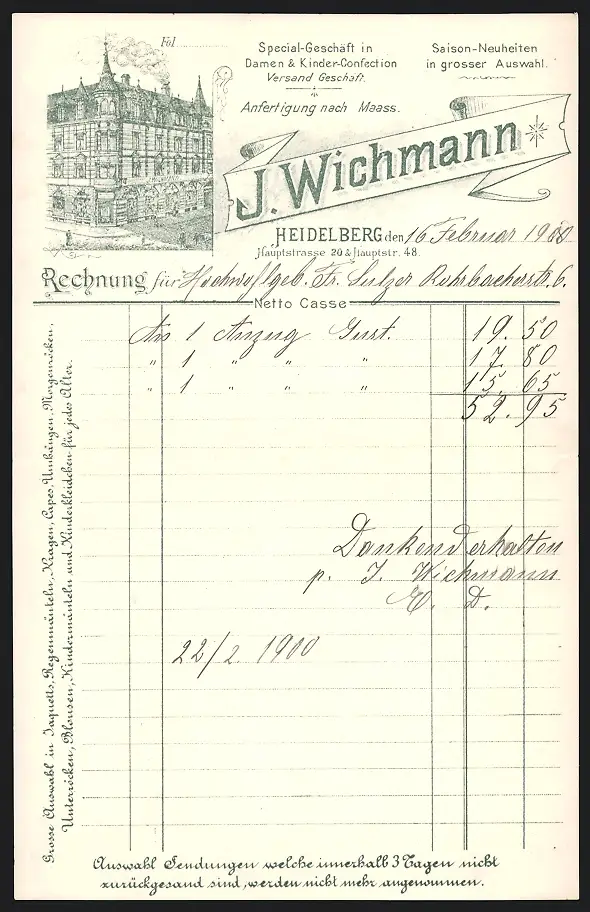 Fol
Special-Geschäft in
Damen & Kinder-Confection
Versand Geschäft.
Anfertigung nach Maass.
Saison-Neuheiten
in grosser Auswahl.
J. Wichmann
HEIDELBERG den 16 Februar 1900
Hauptstrasse 20 & Hauptstr. 48.
Rechnung für Hochwohlgeb. Fr. Sulzer Rohrbacherstr. 6.
Netto Casse
An 1 Anzug Gust. 19. 50
" 1 " " " 17. 80
" 1 " " " 15. 65
52. 95
Dankend erhalten
p. J. Wichmann
E. D.
22/2. 1900
Grosse Auswahl in Jaquetts, Regenmänteln, Kragen, Capes, Umhängen, Morgenröcken,
Unterröcken, Blousen, Kindermänteln und Kinderkleidchen für jedes Alter.
Auswahl Sendungen welche innerhalb 3 Tagen nicht
zurückgesand sind, werden nicht mehr angenommen.